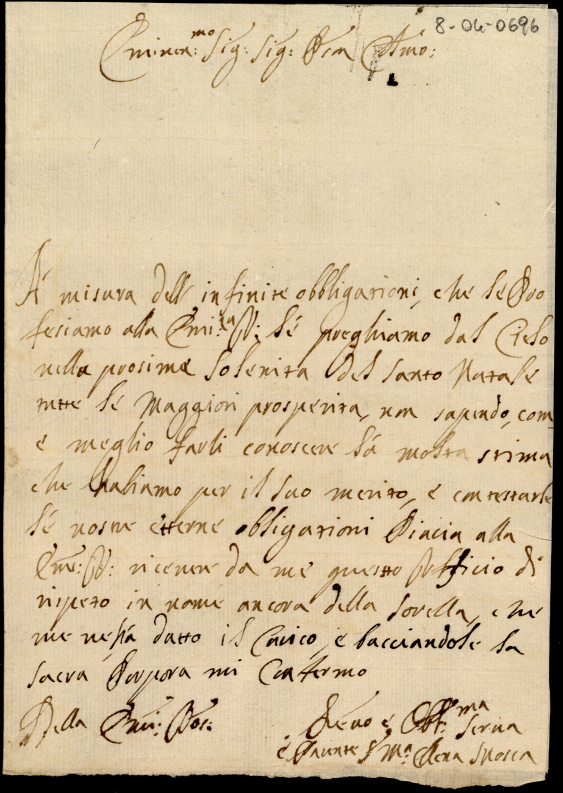 8-04-0696
Eminen:mo Sig: Sig: Pron Colmo:
A misura dell' infinite obbligazioni, che le Pro
fesiamo alla Emi:za V: le preghiamo dal Cielo
nella prosima Solenita del Santo Natale
tutte le Maggiori prosperita, non sapendo, com
e meglio farli conoscere la molta stima
che habiamo per il suo merito, e contestarle
le nostre etterne obligazioni Piacia alla
Eme: V: ricevere da me questo Uffficio di
rispeto in nome ancora della Sorella, che
me ne ha datto il Carico, e bacciandole la
Sacra Porpora mi Confermo
Della Emi: Vos:
Devo e Obb:ma Serva
e Parente Ma Elena Mosca